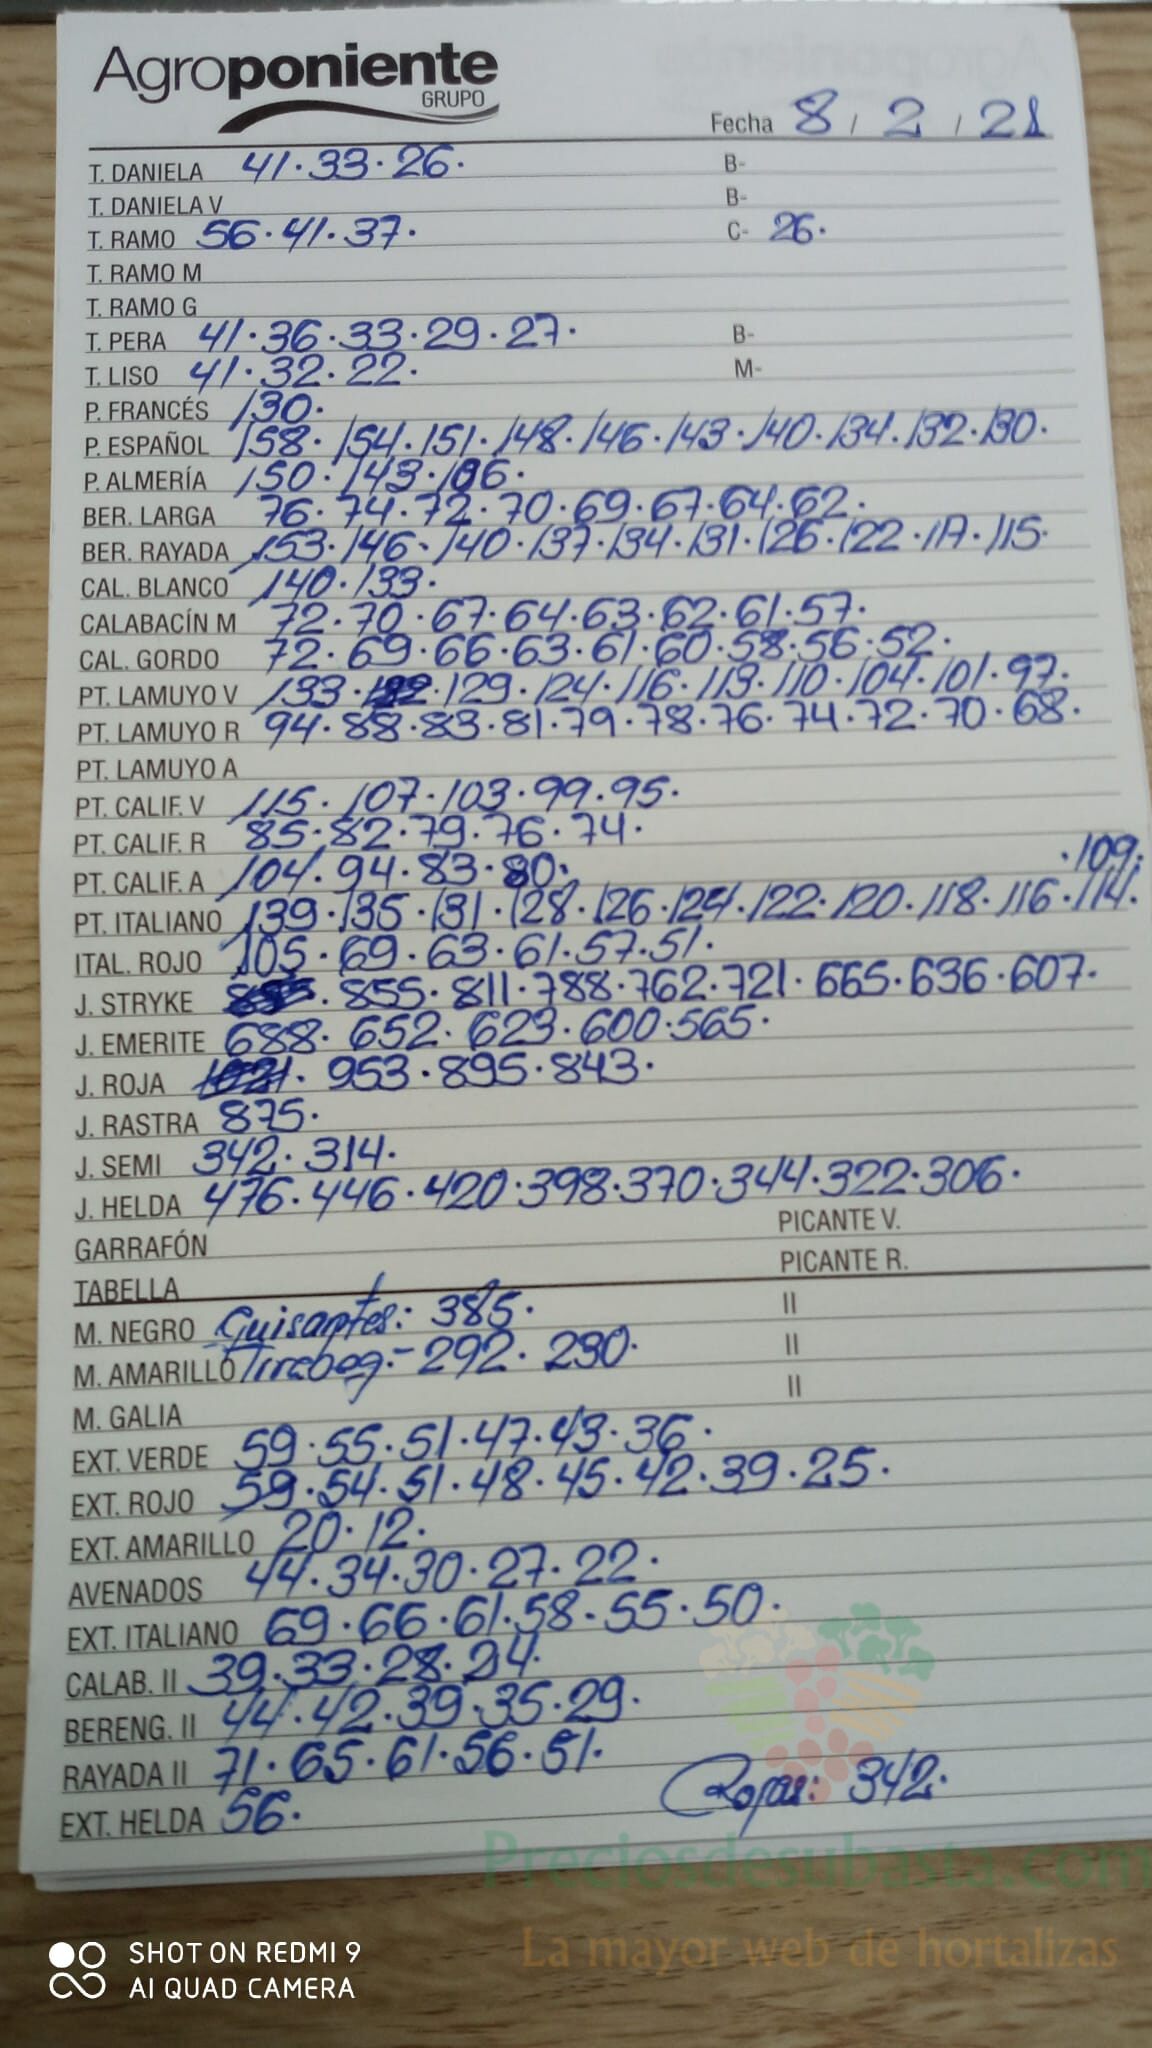 Agroponiente
GRUPO
Fecha 8 / 2 / 21
T. DANIELA 41·33·26· B-
T. DANIELA V B-
T. RAMO 56·41·37· C- 26·
T. RAMO M
T. RAMO G
T. PERA 41·36·33·29·27· B-
T. LISO 41·32·22· M-
P. FRANCÉS 130·
P. ESPAÑOL 158·154·151·148·146·143·140·134·132·130·
P. ALMERÍA 150·143·106·
BER. LARGA 76·74·72·70·69·67·64·62·
BER. RAYADA 153·146·140·137·134·131·126·122·117·115·
CAL. BLANCO 140·133·
CALABACÍN M 72·70·67·64·63·62·61·57·
CAL. GORDO 72·69·66·63·61·60·58·56·52·
PT. LAMUYO V 133·129·124·116·113·110·104·101·97·
PT. LAMUYO R 94·88·83·81·79·78·76·74·72·70·68·
PT. LAMUYO A
PT. CALIF. V 115·107·103·99·95·
PT. CALIF. R 85·82·79·76·74·
PT. CALIF. A 104·94·83·80·
·109·
PT. ITALIANO 139·135·131·128·126·124·122·120·118·116·114·
ITAL. ROJO 105·69·63·61·57·51·
J. STRYKE 855·811·788·762·721·665·636·607·
J. EMERITE 688·652·623·600·565·
J. ROJA 953·895·843·
J. RASTRA 875·
J. SEMI 342·314·
J. HELDA 476·446·420·398·370·344·322·306·
GARRAFÓN PICANTE V.
TABELLA PICANTE R.
M. NEGRO Guisantes: 385· II
M. AMARILLO Tirabeg:- 292·230· II
M. GALIA II
EXT. VERDE 59·55·51·47·43·36·
EXT. ROJO 59·54·51·48·45·42·39·25·
EXT. AMARILLO 20·12·
AVENADOS 44·34·30·27·22·
EXT. ITALIANO 69·66·61·58·55·50·
CALAB. II 39·33·28·24·
BERENG. II 44·42·39·35·29·
RAYADA II 71·65·61·56·51·
EXT. HELDA 56· Rojas: 342·
Preciosdesubasta.com
La mayor web de hortalizas
SHOT ON REDMI 9
AI QUAD CAMERA